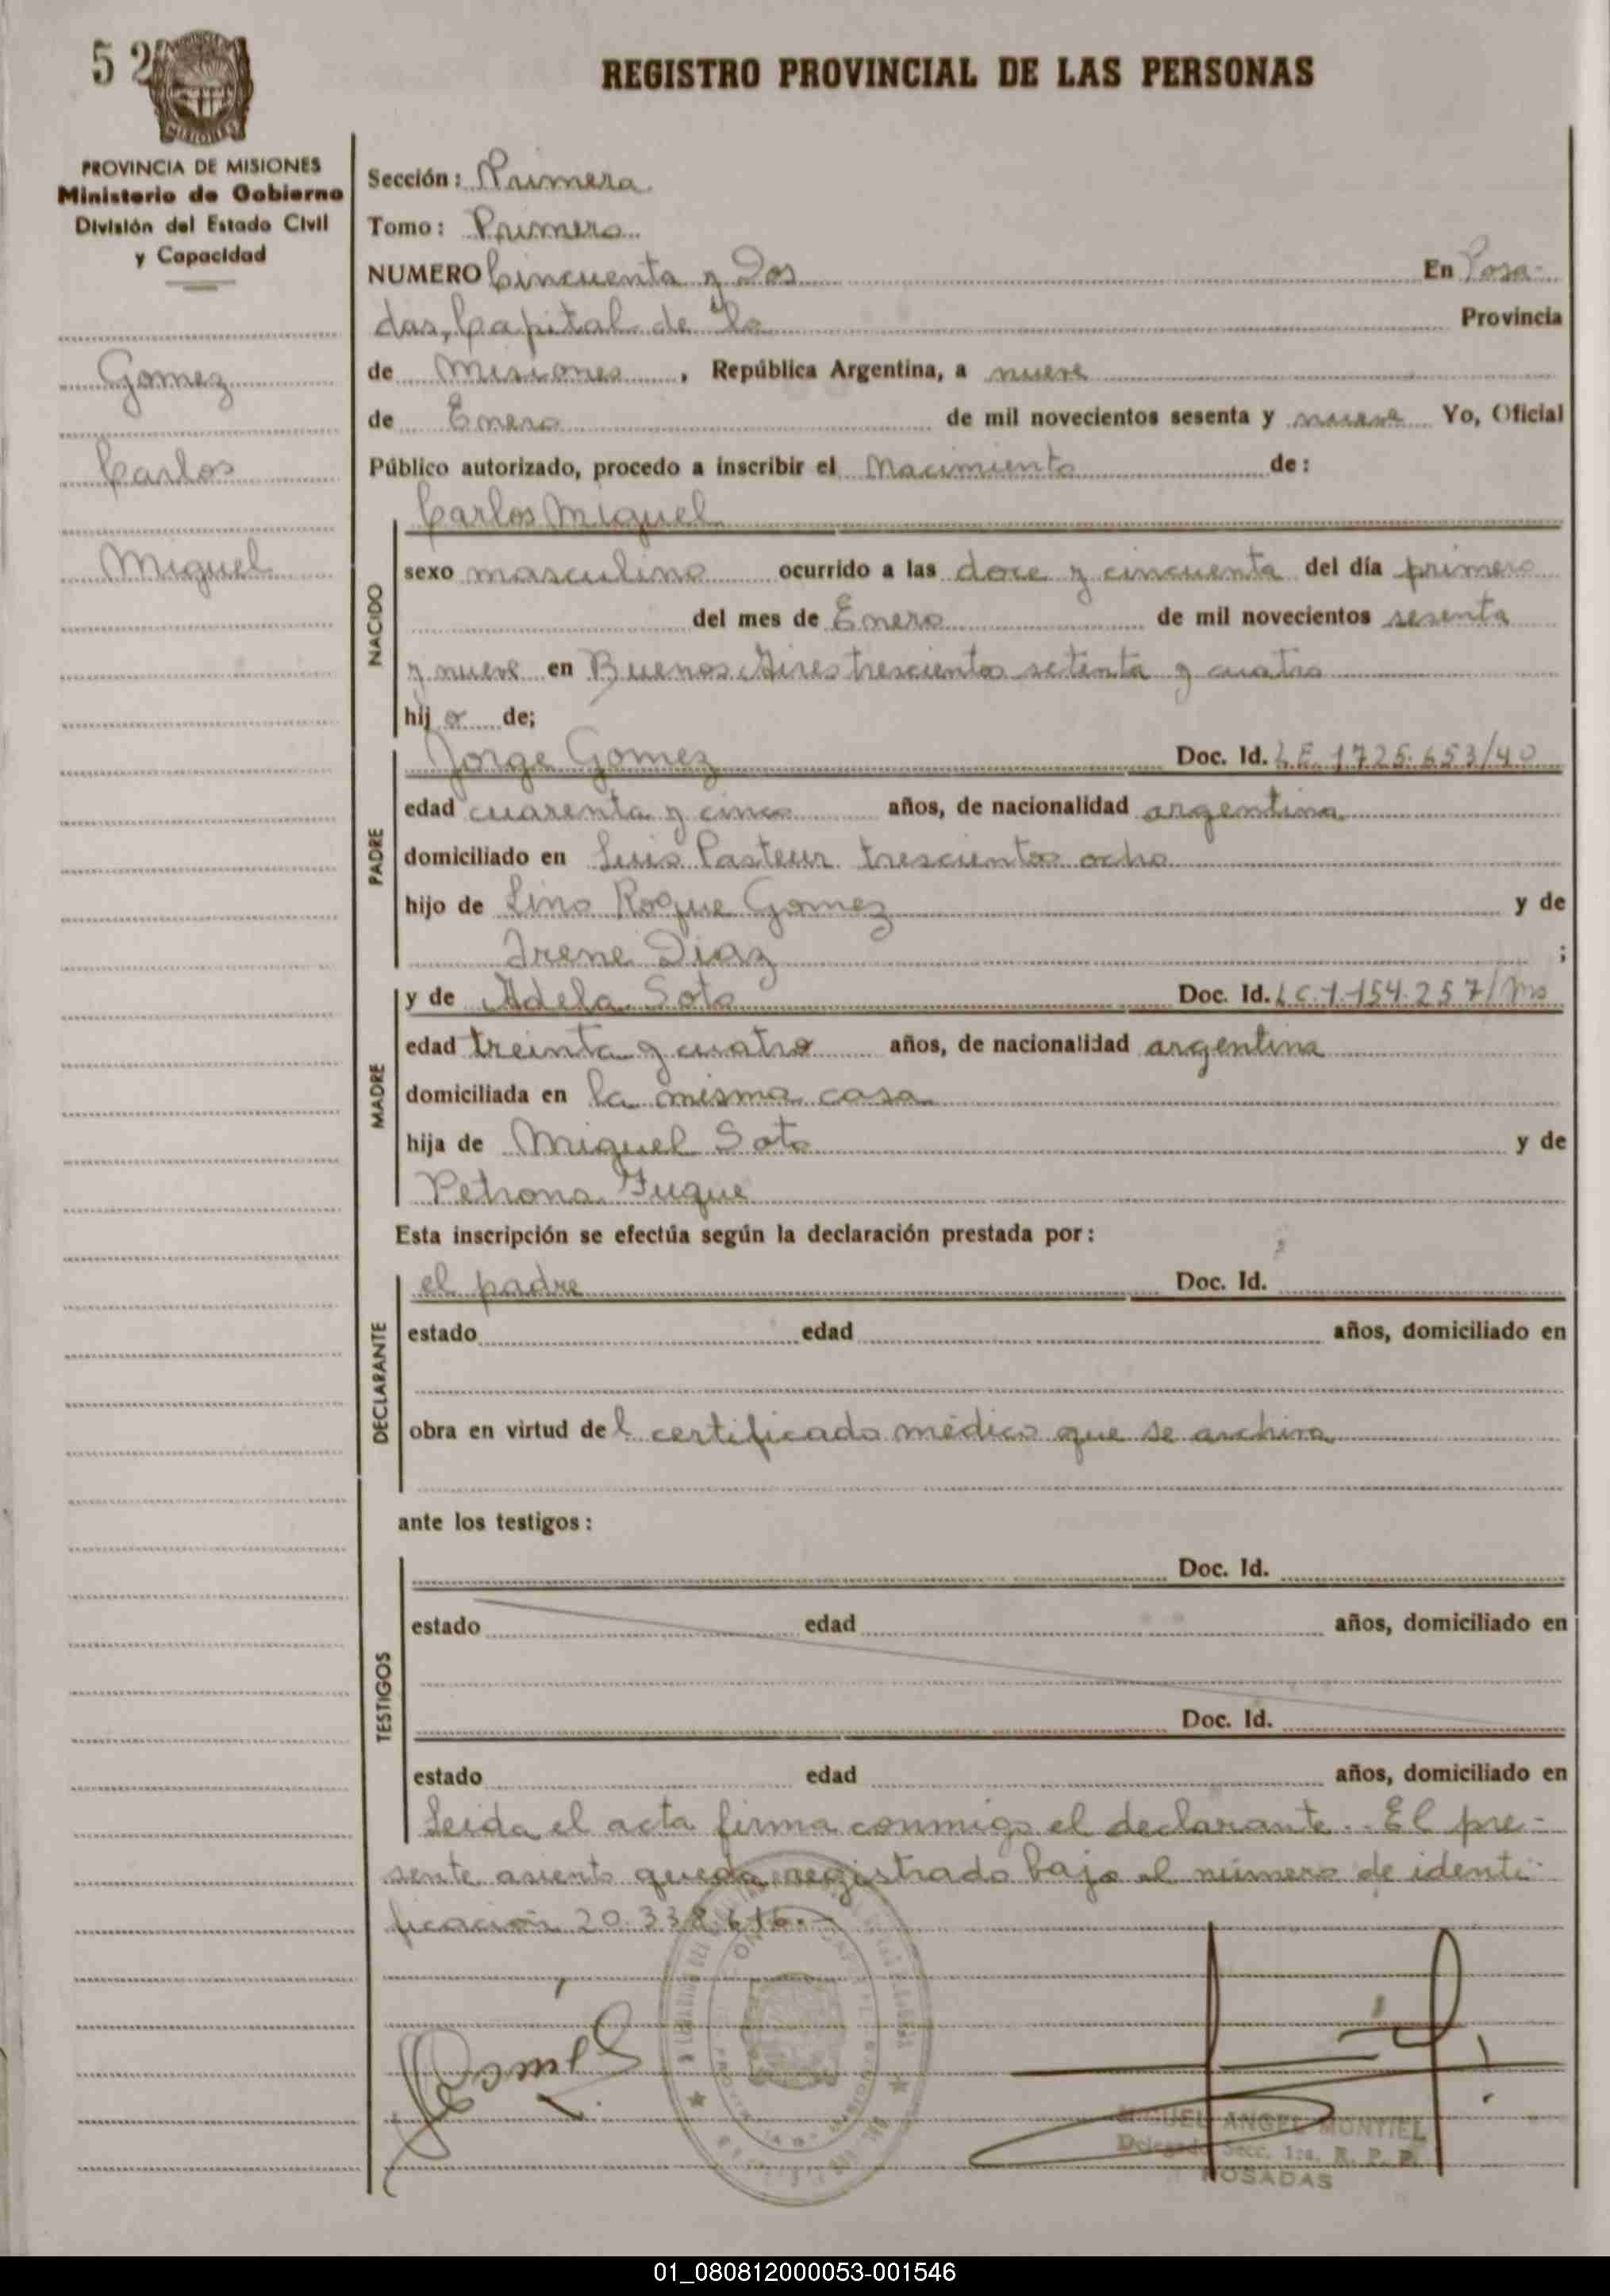 52
MISIONES
REGISTRO PROVINCIAL DE LAS PERSONAS
PROVINCIA DE MISIONES
Ministerio de Gobierno
División del Estado Civil
y Capacidad
Gomez
Carlos
Miguel
Sección: Primera
Tomo: Primero
NUMERO Cincuenta y Dos En Posa-
das, Capital de la Provincia
de Misiones, República Argentina, a nueve
de Enero de mil novecientos sesenta y nueve Yo, Oficial
Público autorizado, procedo a inscribir el Nacimiento de:
Carlos Miguel
NACIDO
sexo masculino ocurrido a las doce y cincuenta del día primero
del mes de Enero de mil novecientos sesenta
y nueve en Buenos Aires trescientos setenta y cuatro
hijo de;
Jorge Gomez Doc. Id. L E. 1725.653/40
PADRE
edad cuarenta y cinco años, de nacionalidad argentina
domiciliado en Luis Pasteur trescientos ocho
hijo de Lino Roque Gomez y de
Irene Diaz ;
y de Adela Soto Doc. Id. L C. 1.154.257/Ms
MADRE
edad treinta y cuatro años, de nacionalidad argentina
domiciliada en la misma casa
hija de Miguel Soto y de
Petrona Fuque
Esta inscripción se efectúa según la declaración prestada por:
el padre Doc. Id.
DECLARANTE
estado edad años, domiciliado en
obra en virtud del certificado médico que se archiva
ante los testigos:
Doc. Id.
TESTIGOS
estado edad años, domiciliado en
Doc. Id.
estado edad años, domiciliado en
Leida el acta firma conmigo el declarante.- El pre-
sente asiento queda registrado bajo el número de identi-
ficación 20.338.616.-
MIGUEL ANGEL MONTIEL
Delegado Secc. 1ra. R. P. P.
POSADAS
01_080812000053-001546